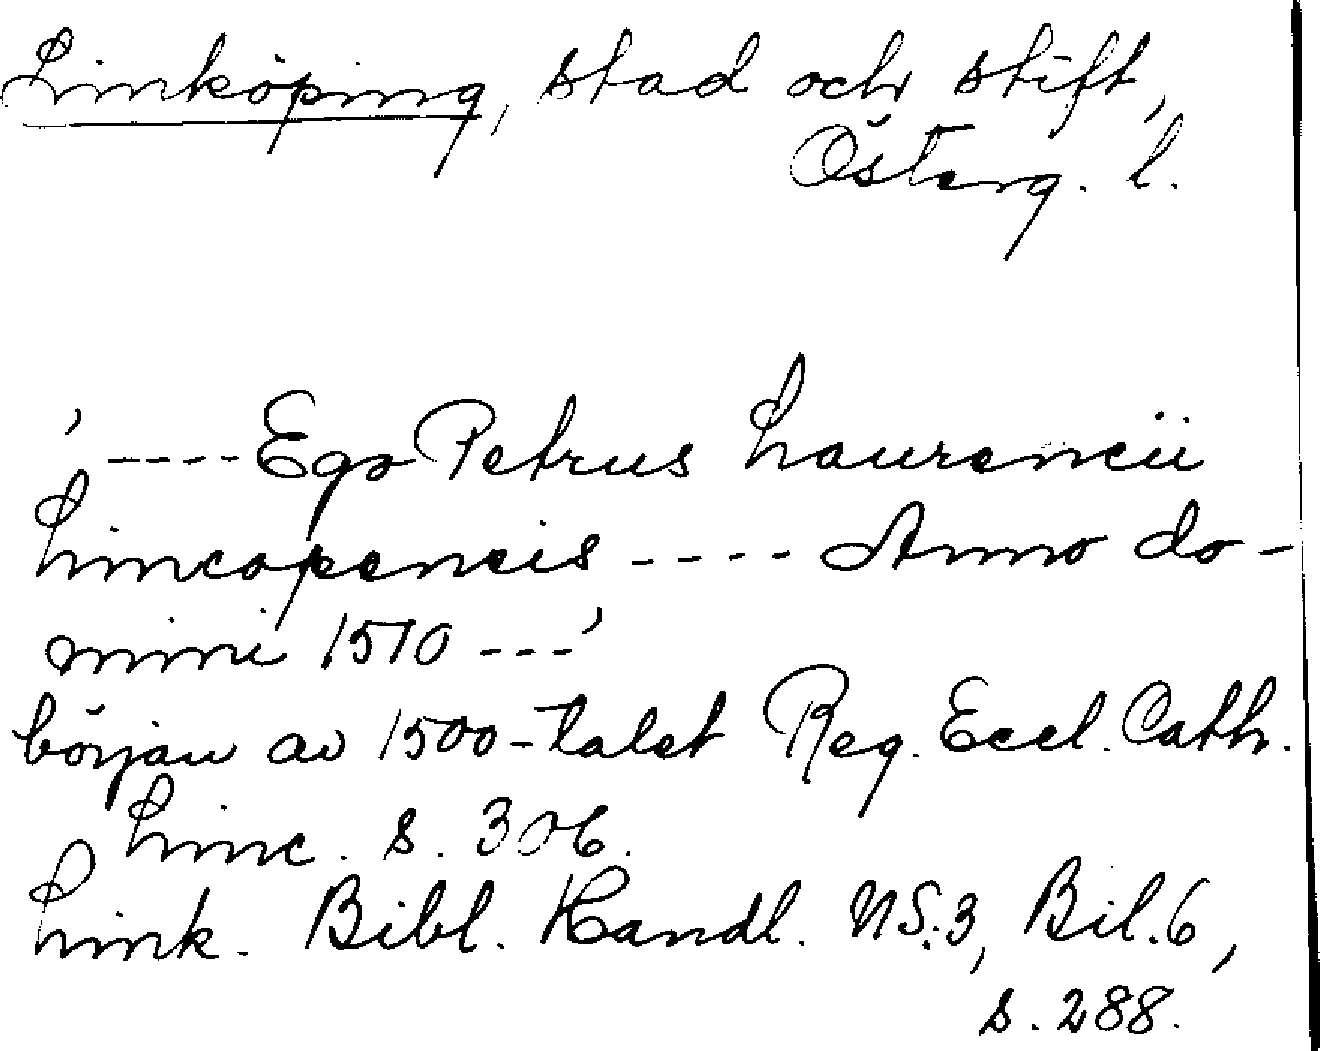 Linköping, stad och stift,
Österg. l.
' ---- Ego Petrus Laurencii
Lincopencis ---- Anno do-
mini 1510 ---'
början av 1500-talet Reg. Eccl. Cath.
Linc. s. 306.
Link. Bibl. Handl. NS:3, Bil. 6,
s. 288.